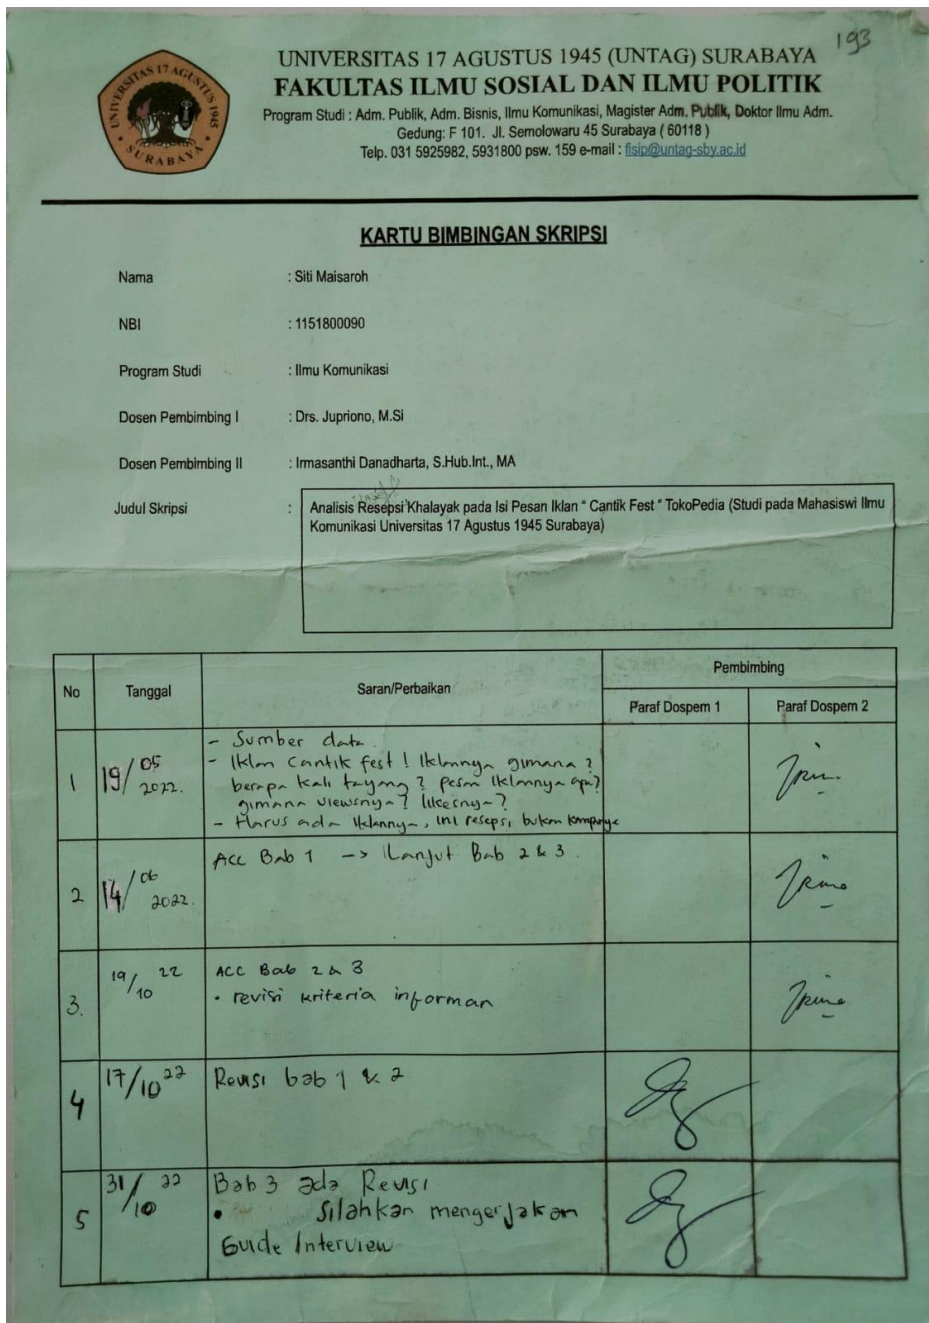 193
UNIVERSITAS 17 AGUSTUS 1945
SURABAYA
UNIVERSITAS 17 AGUSTUS 1945 (UNTAG) SURABAYA
FAKULTAS ILMU SOSIAL DAN ILMU POLITIK
Program Studi : Adm. Publik, Adm. Bisnis, Ilmu Komunikasi, Magister Adm. Publik, Doktor Ilmu Adm.
Gedung: F 101. Jl. Semolowaru 45 Surabaya ( 60118 )
Telp. 031 5925982, 5931800 psw. 159 e-mail : fisip@untag-sby.ac.id
KARTU BIMBINGAN SKRIPSI
Nama : Siti Maisaroh
NBI : 1151800090
Program Studi : Ilmu Komunikasi
Dosen Pembimbing I : Drs. Jupriono, M.Si
Dosen Pembimbing II : Irmasanthi Danadharta, S.Hub.Int., MA
Judul Skripsi : Analisis Resepsi Khalayak pada Isi Pesan Iklan " Cantik Fest " TokoPedia (Studi pada Mahasiswi Ilmu
Komunikasi Universitas 17 Agustus 1945 Surabaya)
No Tanggal Saran/Perbaikan Pembimbing
Paraf Dospem 1 Paraf Dospem 2
1 19/05 2022. - Sumber data.
- Iklan Cantik fest ! Iklannya gimana ?
berapa kali tayang ? pesan iklannya apa?
gimana viewsnya ? likesnya ?
- Harus ada iklannya, ini resepsi, bukan
2 14/06 2022. ACC Bab 1 -> Lanjut Bab 2 & 3.
3. 19/10 22 ACC Bab 2 & 3
• revisi kriteria informan
4 17/10 22 Revisi bab 1 & 2
5 31/10 22 Bab 3 ada Revisi
• Silahkan mengerjakan
Guide Interview